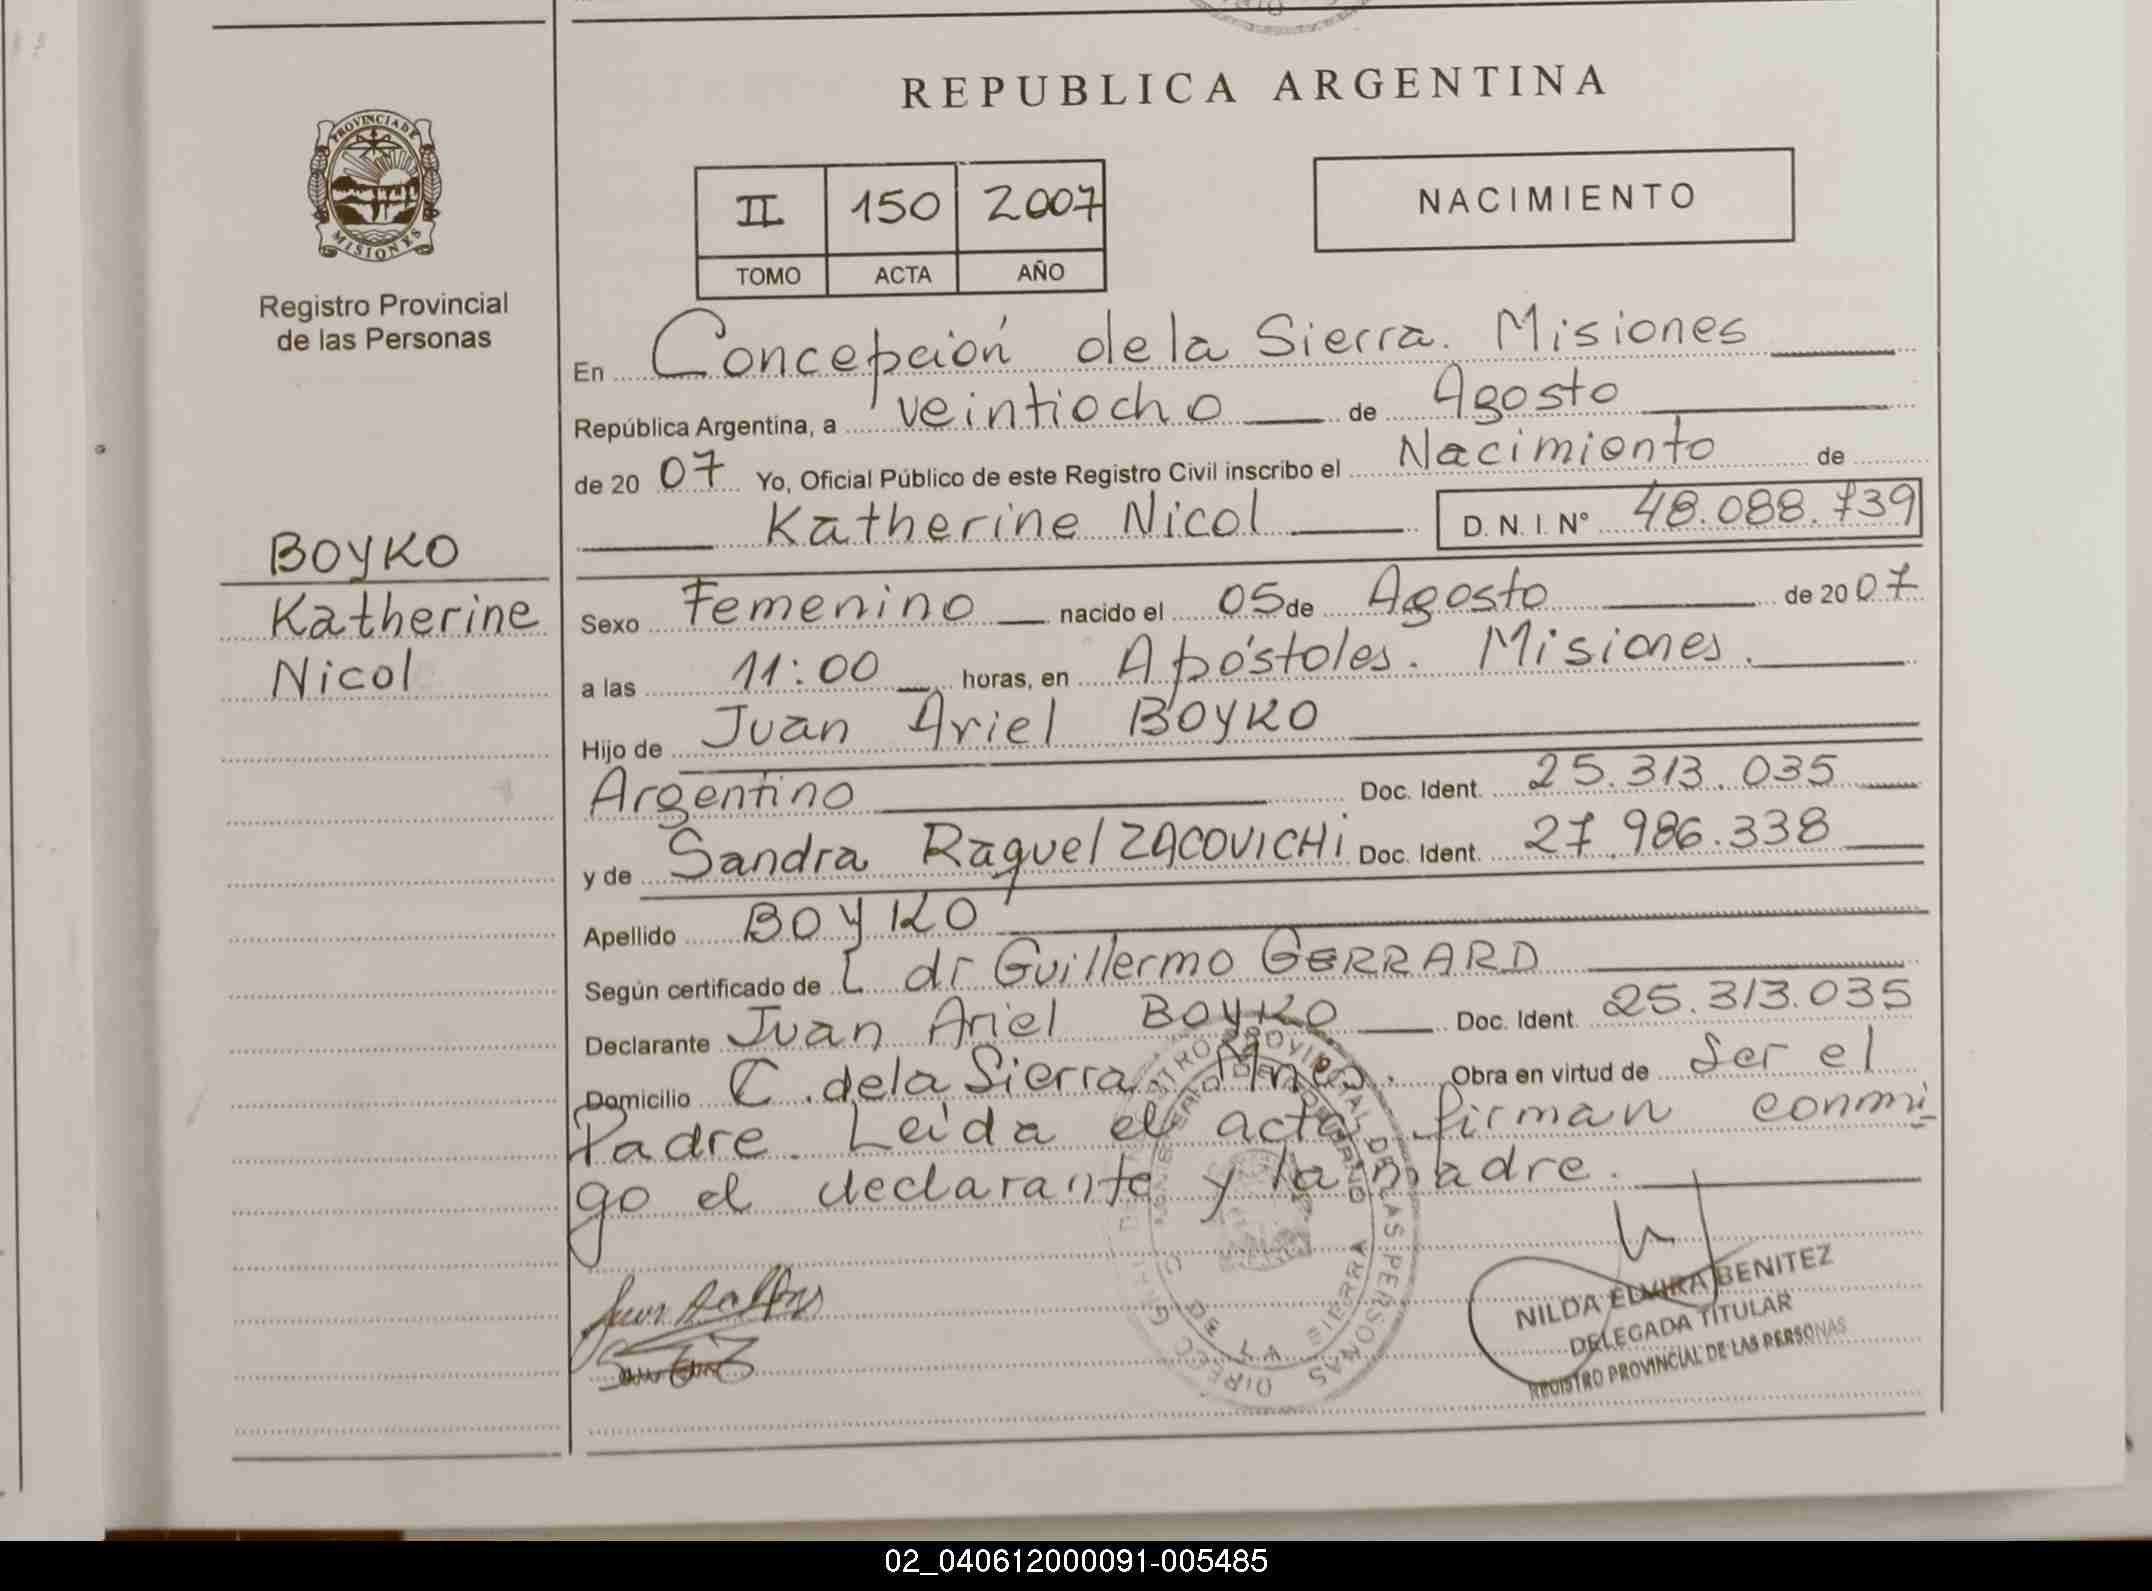 REPUBLICA ARGENTINA
PROVINCIA DE
MISIONES
Registro Provincial
de las Personas
II 150 2007
TOMO ACTA AÑO
NACIMIENTO
En Concepción de la Sierra. Misiones
República Argentina, a veintiocho de Agosto
de 20 07 Yo, Oficial Público de este Registro Civil inscribo el Nacimiento de
Katherine Nicol D. N. I. Nº 48.088.739
BOYKO
Katherine
Nicol
Sexo Femenino nacido el 05 de Agosto de 20 07
a las 11:00 horas, en Apóstoles. Misiones.
Hijo de Juan Ariel BOYKO
Argentino Doc. Ident. 25.313.035
y de Sandra Raquel ZACOVICHi Doc. Ident. 27.986.338
Apellido BOYKO
Según certificado de dr Guillermo GERRARD
Declarante Juan Ariel BOYKO Doc. Ident. 25.313.035
Domicilio C. de la Sierra Mnes. Obra en virtud de Ser el
Padre. Leida el acta firman conmi
go el declarante y la madre.
NILDA ELVIRA BENITEZ
DELEGADA TITULAR
REGISTRO PROVINCIAL DE LAS PERSONAS
C. DE LA SIERRA
02_040612000091-005485